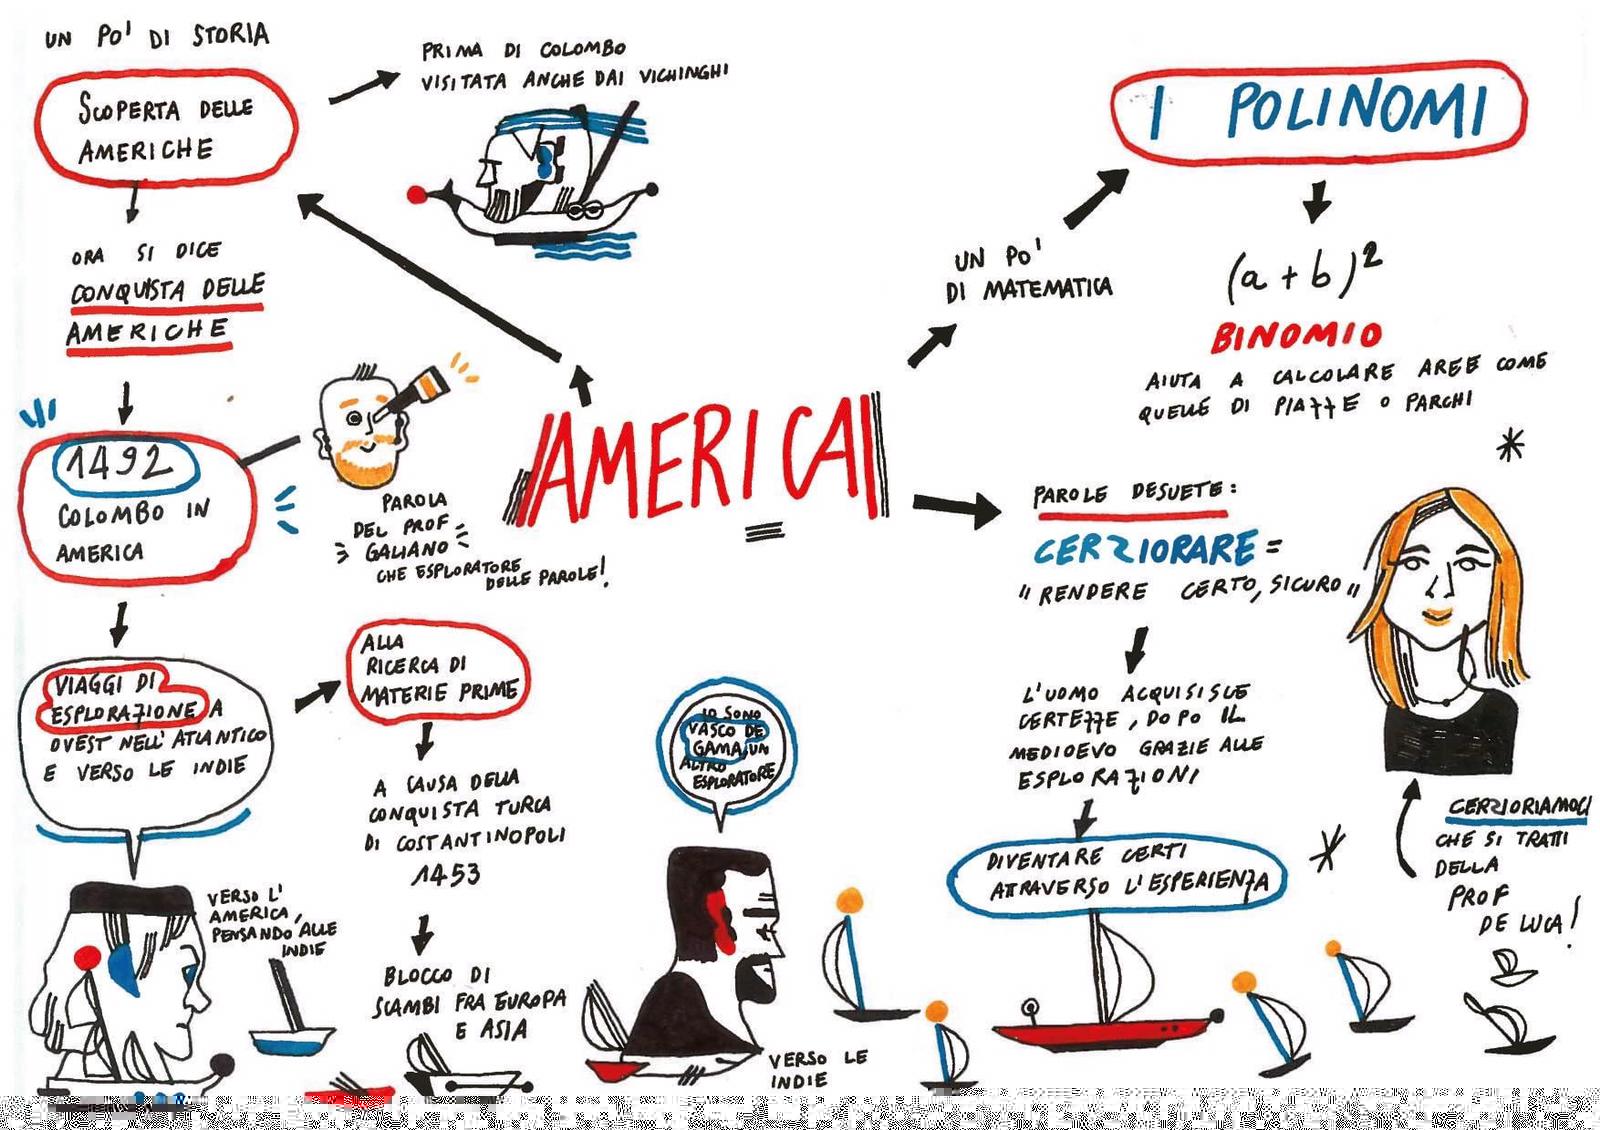 UN PO' DI STORIA
SCOPERTA DELLE
AMERICHE
PRIMA DI COLOMBO
VISITATA ANCHE DAI VICHINGHI
ORA SI DICE
CONQUISTA DELLE
AMERICHE
1492
COLOMBO IN
AMERICA
PAROLA
DEL PROF
GALIANO
CHE ESPLORATORE
DELLE PAROLE!
VIAGGI DI
ESPLORAZIONE A
OVEST NELL'ATLANTICO
E VERSO LE INDIE
VERSO L'
AMERICA,
PENSANDO ALLE
INDIE
ALLA
RICERCA DI
MATERIE PRIME
A CAUSA DELLA
CONQUISTA TURCA
DI COSTANTINOPOLI
1453
BLOCCO DI
SCAMBI FRA EUROPA
E ASIA
AMERICA
IO SONO
VASCO DE
GAMA, UN
ALTRO
ESPLORATORE
VERSO LE
INDIE
UN PO'
DI MATEMATICA
I POLINOMI
(a + b)²
BINOMIO
AIUTA A CALCOLARE AREE COME
QUELLE DI PIAZZE O PARCHI
PAROLE DESUETE:
CERZIORARE =
"RENDERE CERTO, SICURO"
L'UOMO ACQUISISCE
CERTEZZE, DOPO IL
MEDIOEVO GRAZIE ALLE
ESPLORAZIONI
DIVENTARE CERTI
ATRAVERSO L'ESPERIENZA
CERZIORIAMOCI
CHE SI TRATTI
DELLA
PROF
DE LUCA!